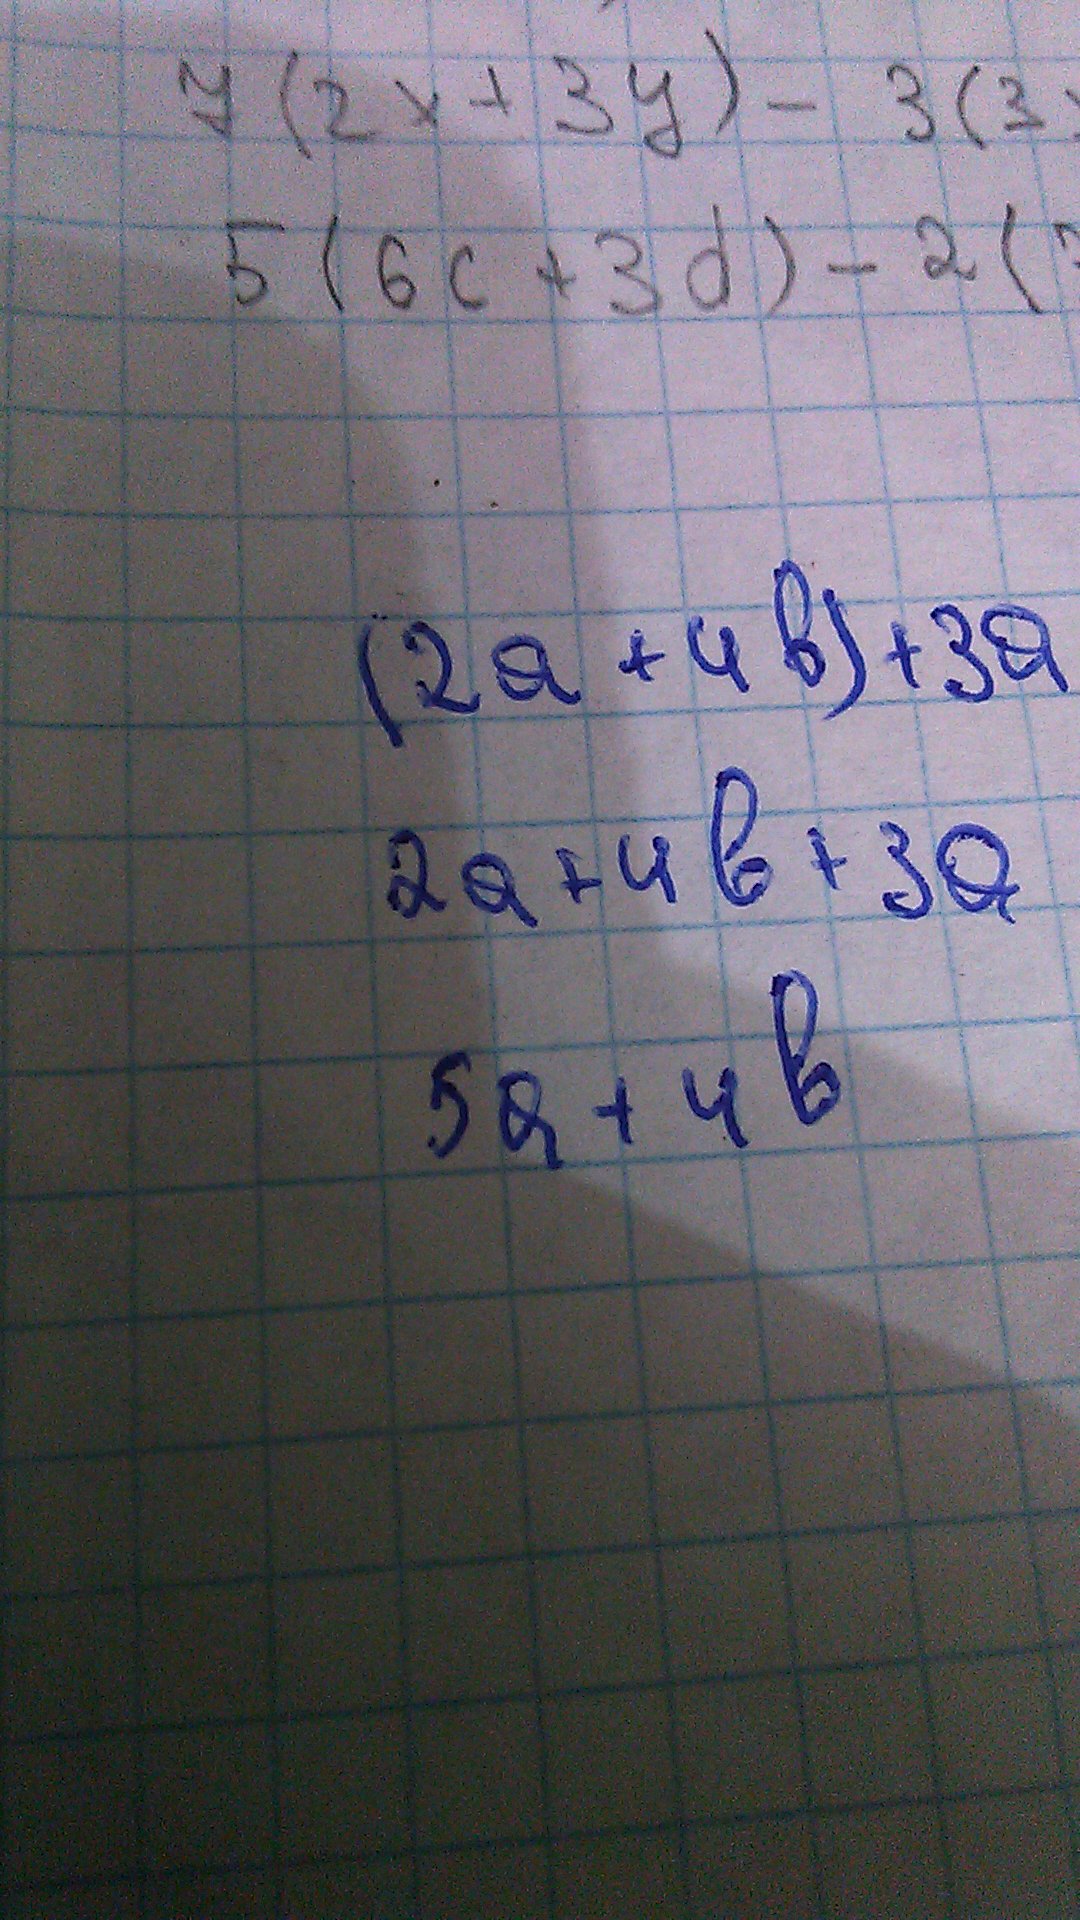 7(2x+3y)-3(3x
5(6c+3d)-2(3
(2a+4b)+3a
2a+4b+3a
5a+4b